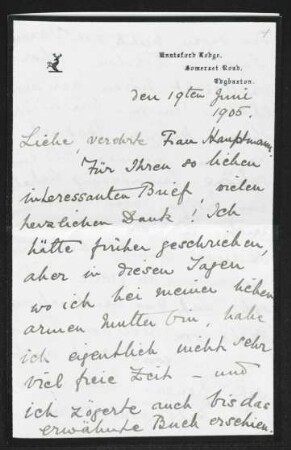 Knutsford Lodge,
Somerset Road,
Edgbaston.
den 19ten Juni
1905.
Liebe, verehrte Frau Hauptmann
Für Ihren so lieben
interessanten Brief, vielen
herzlichen Dank! Ich
hätte früher geschrieben,
aber in diesen Tagen
wo ich bei meiner lieben
armen Mutter bin, habe
ich eigentlich nicht sehr
viel freie Zeit – und
ich zögerte auch bis das
erwähnte Buch erschien.